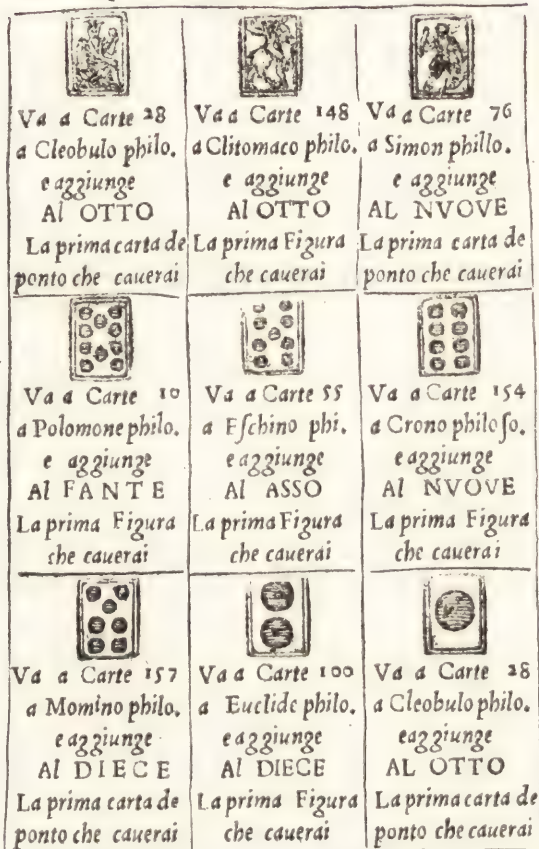 Va a Carte 28
a Cleobulo philo.
e aggiunge
Al OTTO
La prima carta de
ponto che cauerai
Va a Carte 148
a Clitomaco philo.
e aggiunge
Al OTTO
La prima Figura
che cauerai
Va a Carte 76
a Simon phillo.
e aggiunge
AL NVOVE
La prima carta de
ponto che cauerai
Va a Carte 10
a Polomone philo.
e aggiunge
Al FANTE
La prima Figura
che cauerai
Va a Carte 55
a Eſchino phi.
e aggiunge
Al ASSO
La prima Figura
che cauerai
Va a Carte 154
a Crono philoſo.
e aggiunge
Al NVOVE
La prima Figura
che cauerai
Va a Carte 157
a Momino philo.
e aggiunge
Al DIECE
La prima carta de
ponto che cauerai
Va a Carte 100
a Euclide philo.
e aggiunge
Al DIECE
La prima Figura
che cauerai
Va a Carte 28
a Cleobulo philo.
e aggiunge
AL OTTO
La prima carta de
ponto che cauerai